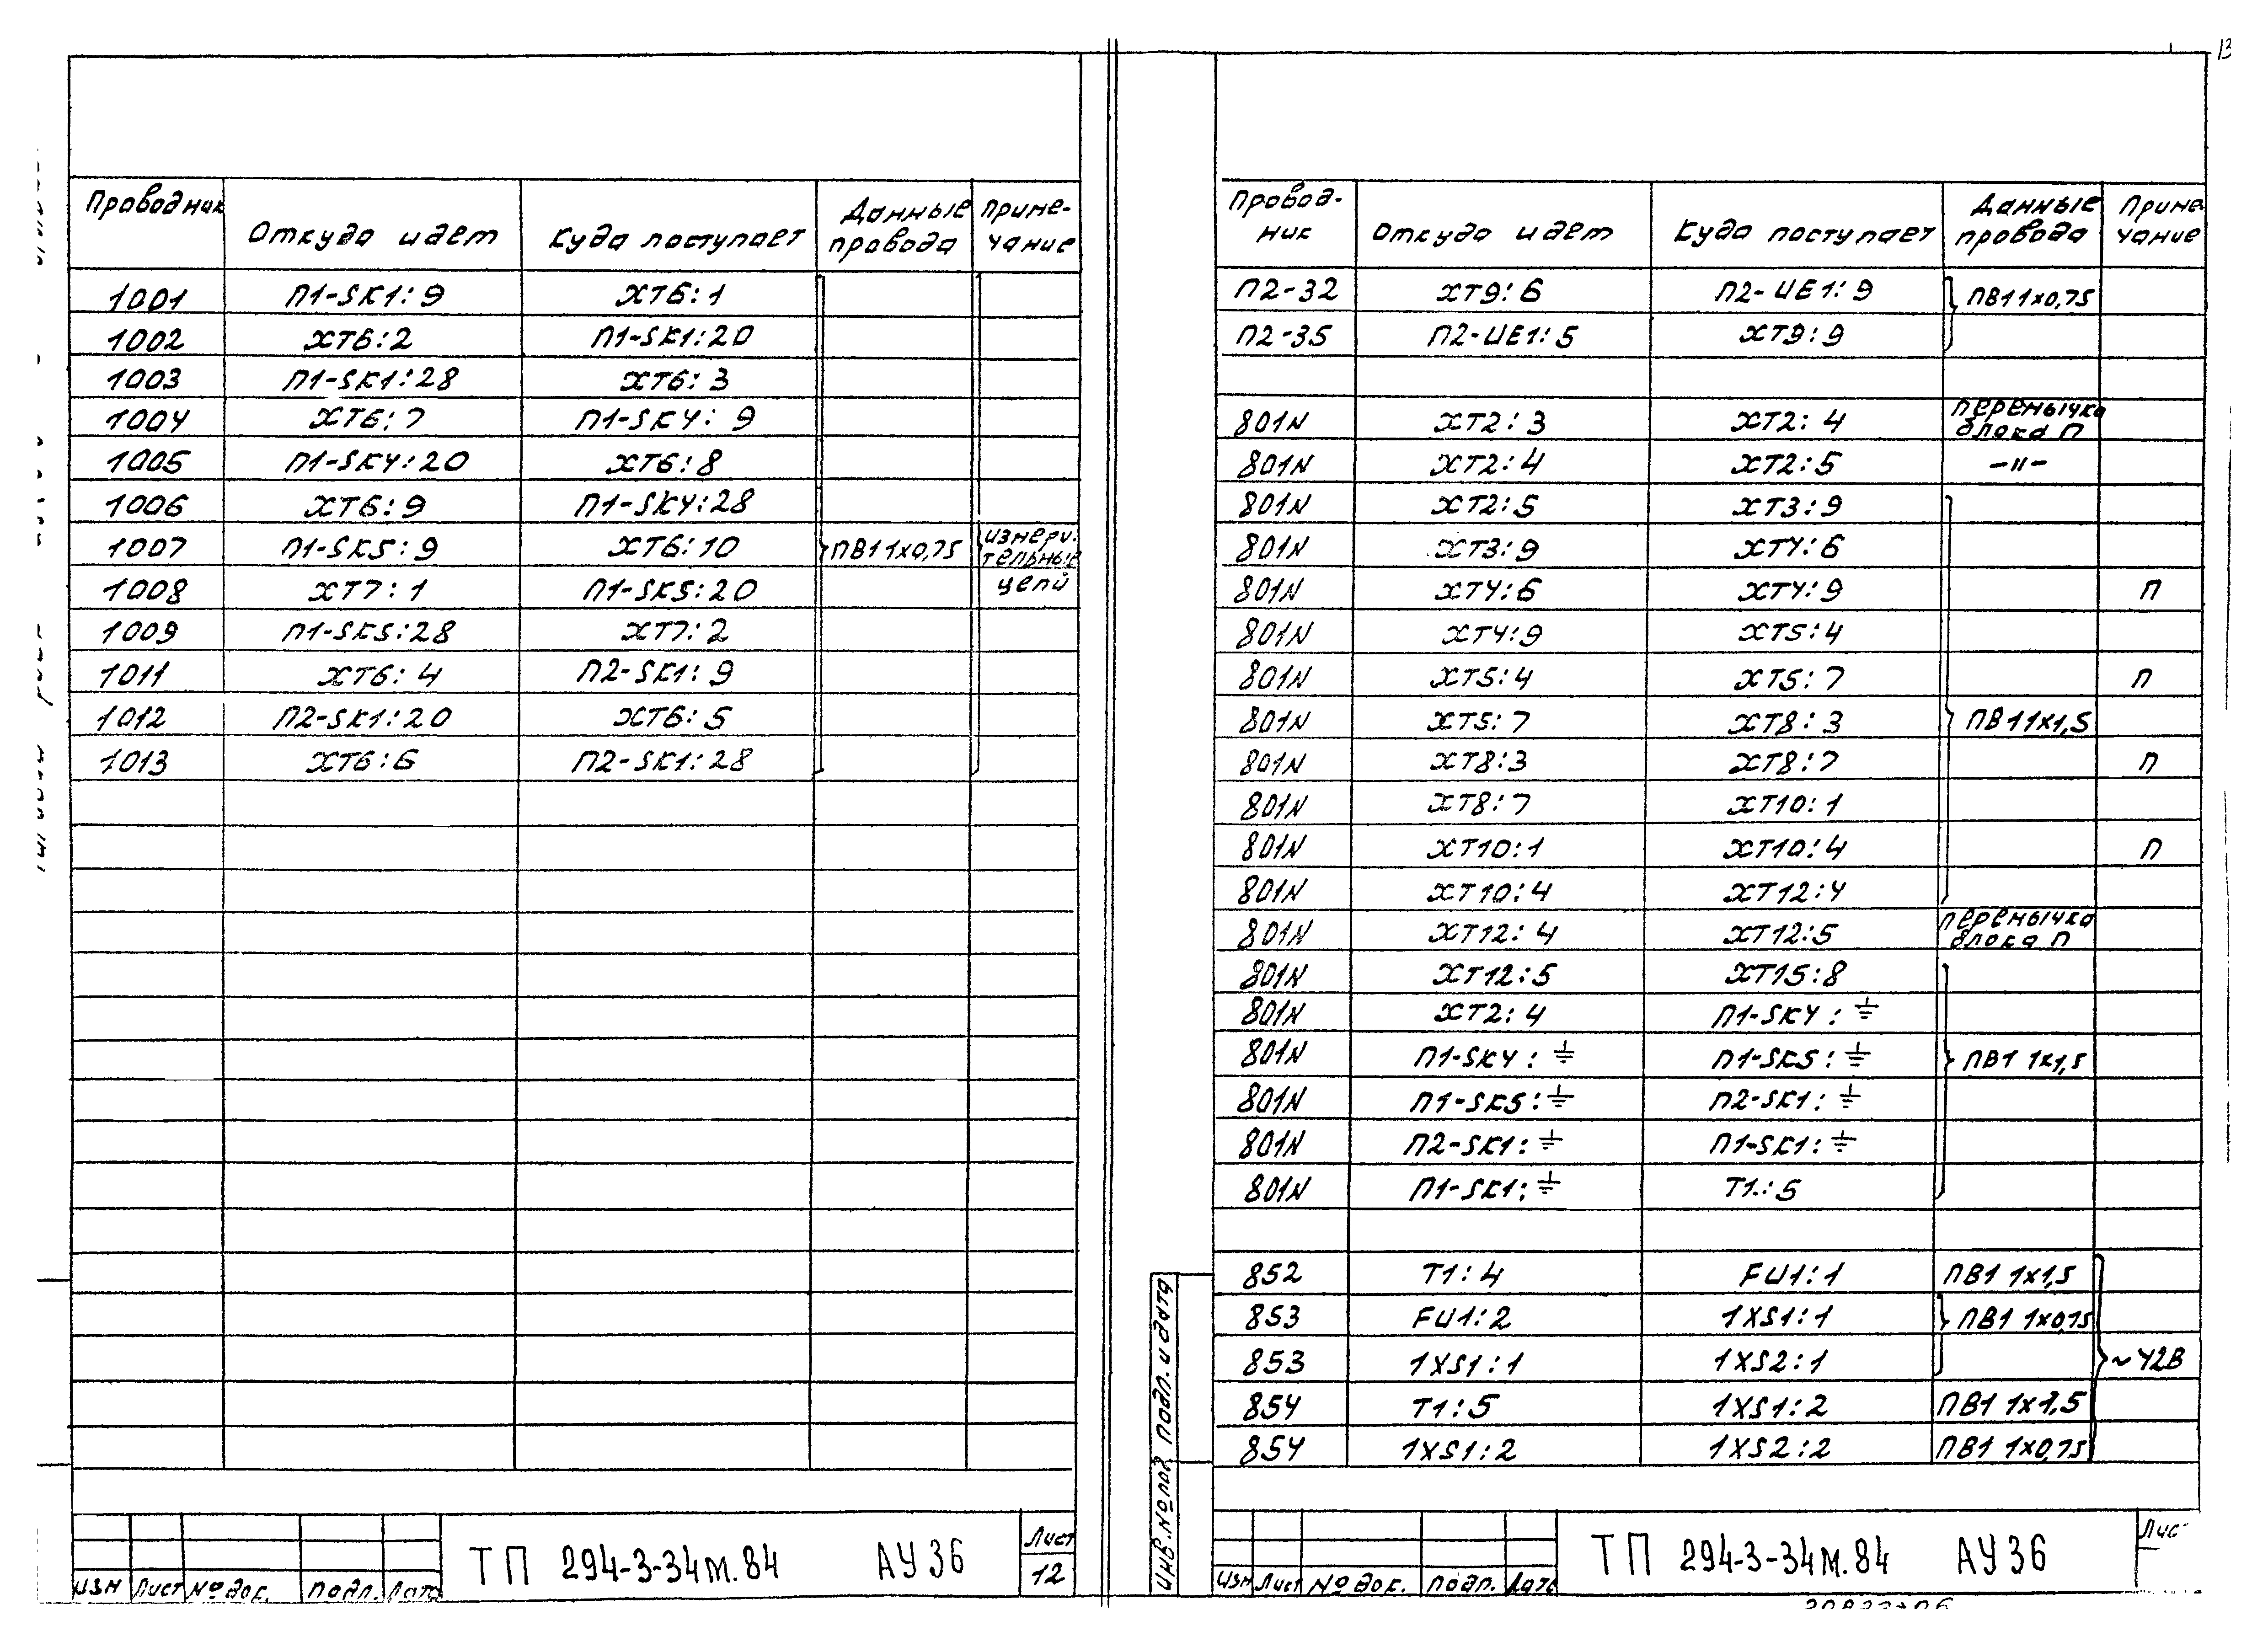 13
Проводник Откуда идет Куда поступает Данные провода Примечание
1001 П1-SK1:9 XT6:1
1002 XT6:2 П1-SK1:20
1003 П1-SK1:28 XT6:3
1004 XT6:7 П1-SK4:9
1005 П1-SK4:20 XT6:8
1006 XT6:9 П1-SK4:28
1007 П1-SK5:9 XT6:10 ПВ1 1х0,75 измерительные цепи
1008 XT7:1 П1-SK5:20
1009 П1-SK5:28 XT7:2
1011 XT6:4 П2-SK1:9
1012 П2-SK1:20 XT6:5
1013 XT6:6 П2-SK1:28
Изм Лист № док. Подп. Дата
ТП 294-3-34м.84 АУ36
Лист
12
Провод-ник Откуда идет Куда поступает Данные провода Примечание
П2-32 XT9:6 П2-UE1:9 ПВ1 1х0,75
П2-35 П2-UE1:5 XT9:9
801N XT2:3 XT2:4 перемычка блока П
801N XT2:4 XT2:5 -"-
801N XT2:5 XT3:9
801N XT3:9 XT4:6
801N XT4:6 XT4:9 П
801N XT4:9 XT5:4
801N XT5:4 XT5:7 П
801N XT5:7 XT8:3 ПВ1 1х1,5
801N XT8:3 XT8:7 П
801N XT8:7 XT10:1
801N XT10:1 XT10:4 П
801N XT10:4 XT12:4
801N XT12:4 XT12:5 перемычка блока П
801N XT12:5 XT15:8
801N XT2:4 П1-SK4:⏚
801N П1-SK4:⏚ П1-SK5:⏚ ПВ1 1х1,5
801N П1-SK5:⏚ П2-SK1:⏚
801N П2-SK1:⏚ П1-SK1:⏚
801N П1-SK1:⏚ T1:5
852 T1:4 FU1:1 ПВ1 1х1,5
853 FU1:2 1XS1:1 ПВ1 1х0,75
853 1XS1:1 1XS2:1 ~42В
854 T1:5 1XS1:2 ПВ1 1х1,5
854 1XS1:2 1XS2:2 ПВ1 1х0,75
Инв.№под Подп. и дата
Изм Лист № док. Подп. Дата
ТП 294-3-34м.84 АУ36
Лис